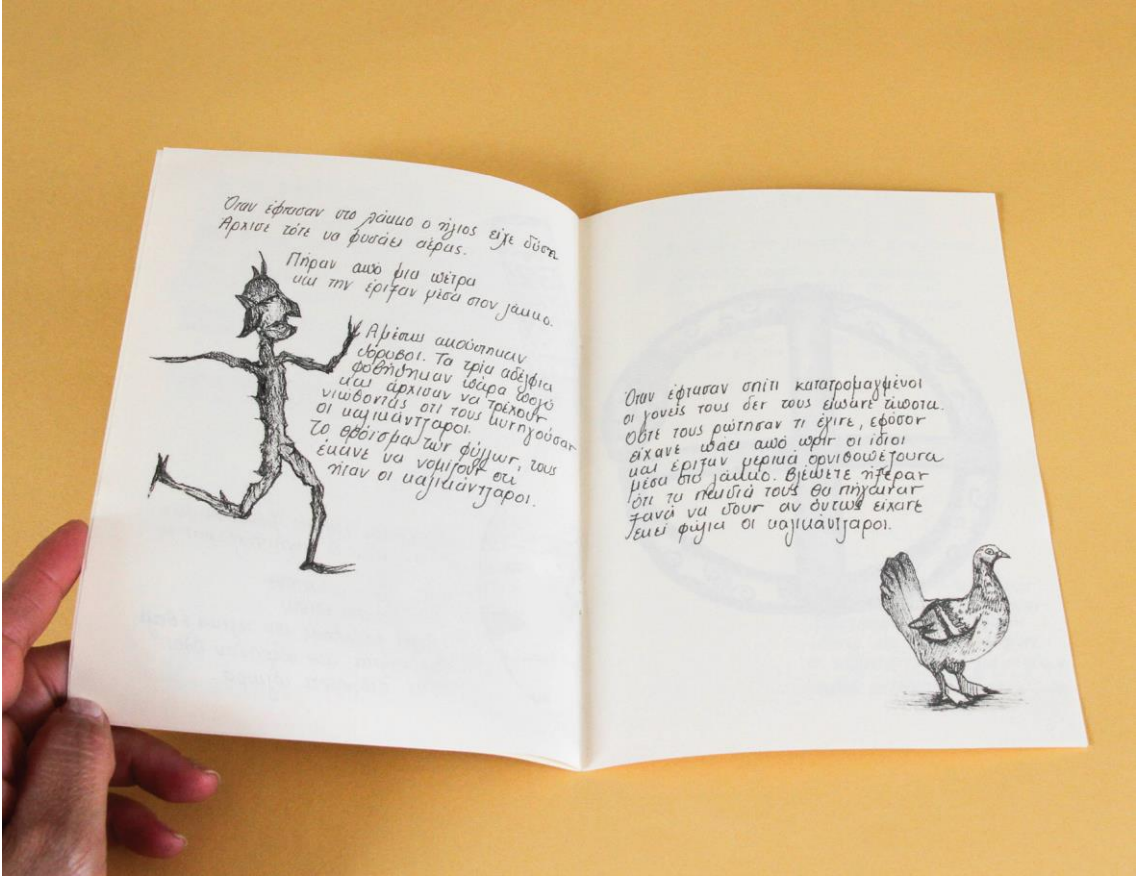 Όταν έφτασαν στο λάκκο ο ήλιος είχε δύσει
Άρχισε τότε να φυσάει αέρας.
Πήραν από μια πέτρα
και την έριξαν μέσα στον λάκκο.
Αμέσως ακούστηκαν
θόρυβοι. Τα τρία αδέλφια
φοβήθηκαν πάρα πολύ
και άρχισαν να τρέχουν
νιώθοντας οτι τους κυνηγούσαν
οι καλικάντζαροι.
Το θρόισμα των φύλλων, τους
έκανε να νομίζουν οτι
ήταν οι καλικάντζαροι.
Όταν έφτασαν σπίτι κατατρομαγμένοι
οι γονείς τους δεν τους είπανε τίποτα.
Ούτε τους ρώτησαν τι έγινε, εφόσον
είχανε πάει από πριν οι ίδιοι
και έριξαν μερικά ορνιθοπέζουνα
μέσα στο λάκκο. Βλέπετε ήξεραν
ότι τα παιδιά τους θα πήγαιναν
ξανά να δουν αν όντως είχανε
εκεί φωλιά οι καλικάντζαροι.